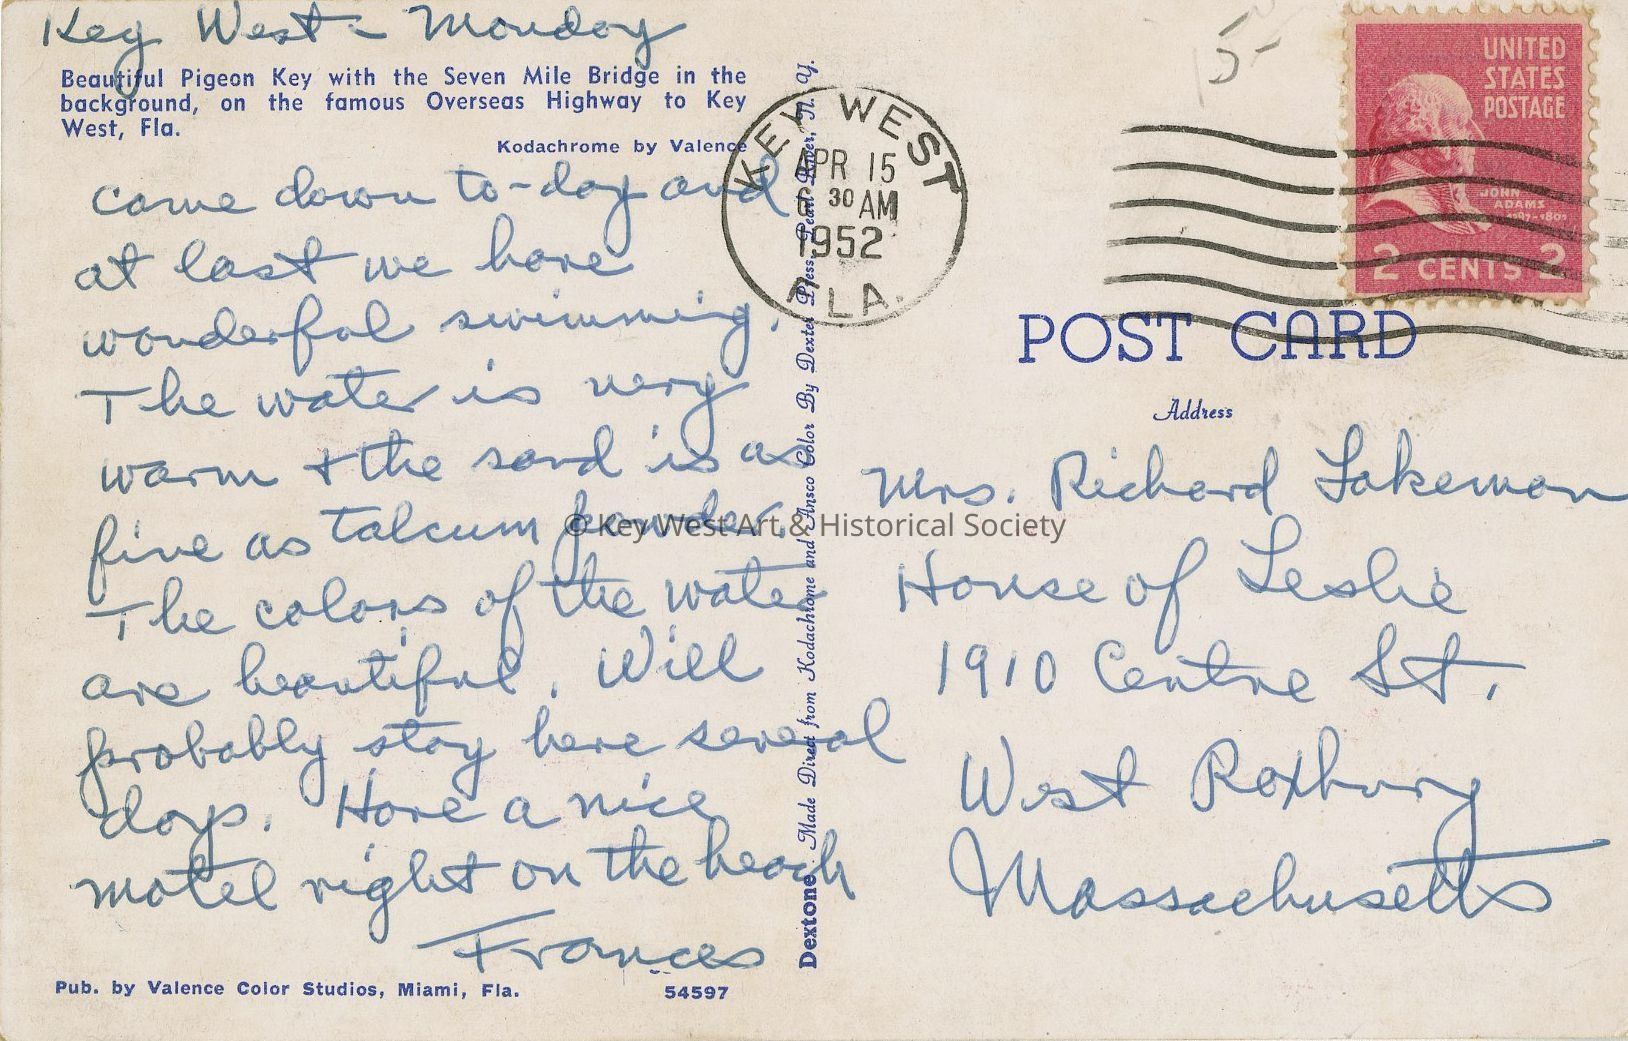 Key West - Monday
Beautiful Pigeon Key with the Seven Mile Bridge in the
background, on the famous Overseas Highway to Key
West, Fla.
Kodachrome by Valence
came down to-day and
at last we have
wonderful swimming.
The water is very
warm & the sand is as
fine as talcum powder.
The colors of the water
are beautiful. Will
probably stay here several
days. Have a nice
motel right on the beach
Frances
Pub. by Valence Color Studios, Miami, Fla.
54597
Dextone Made Direct from Kodachrome and Ansco Color By Dexter Press, Pearl River, N. Y.
KEY WEST
APR 15
6 30 AM
1952
FLA.
5-
UNITED
STATES
POSTAGE
JOHN
ADAMS
1797-1801
2 CENTS 2
POST CARD
Address
Mrs. Richard Lakeman
House of Leslie
1910 Centre St.
West Roxbury
Massachusetts
© Key West Art & Historical Society